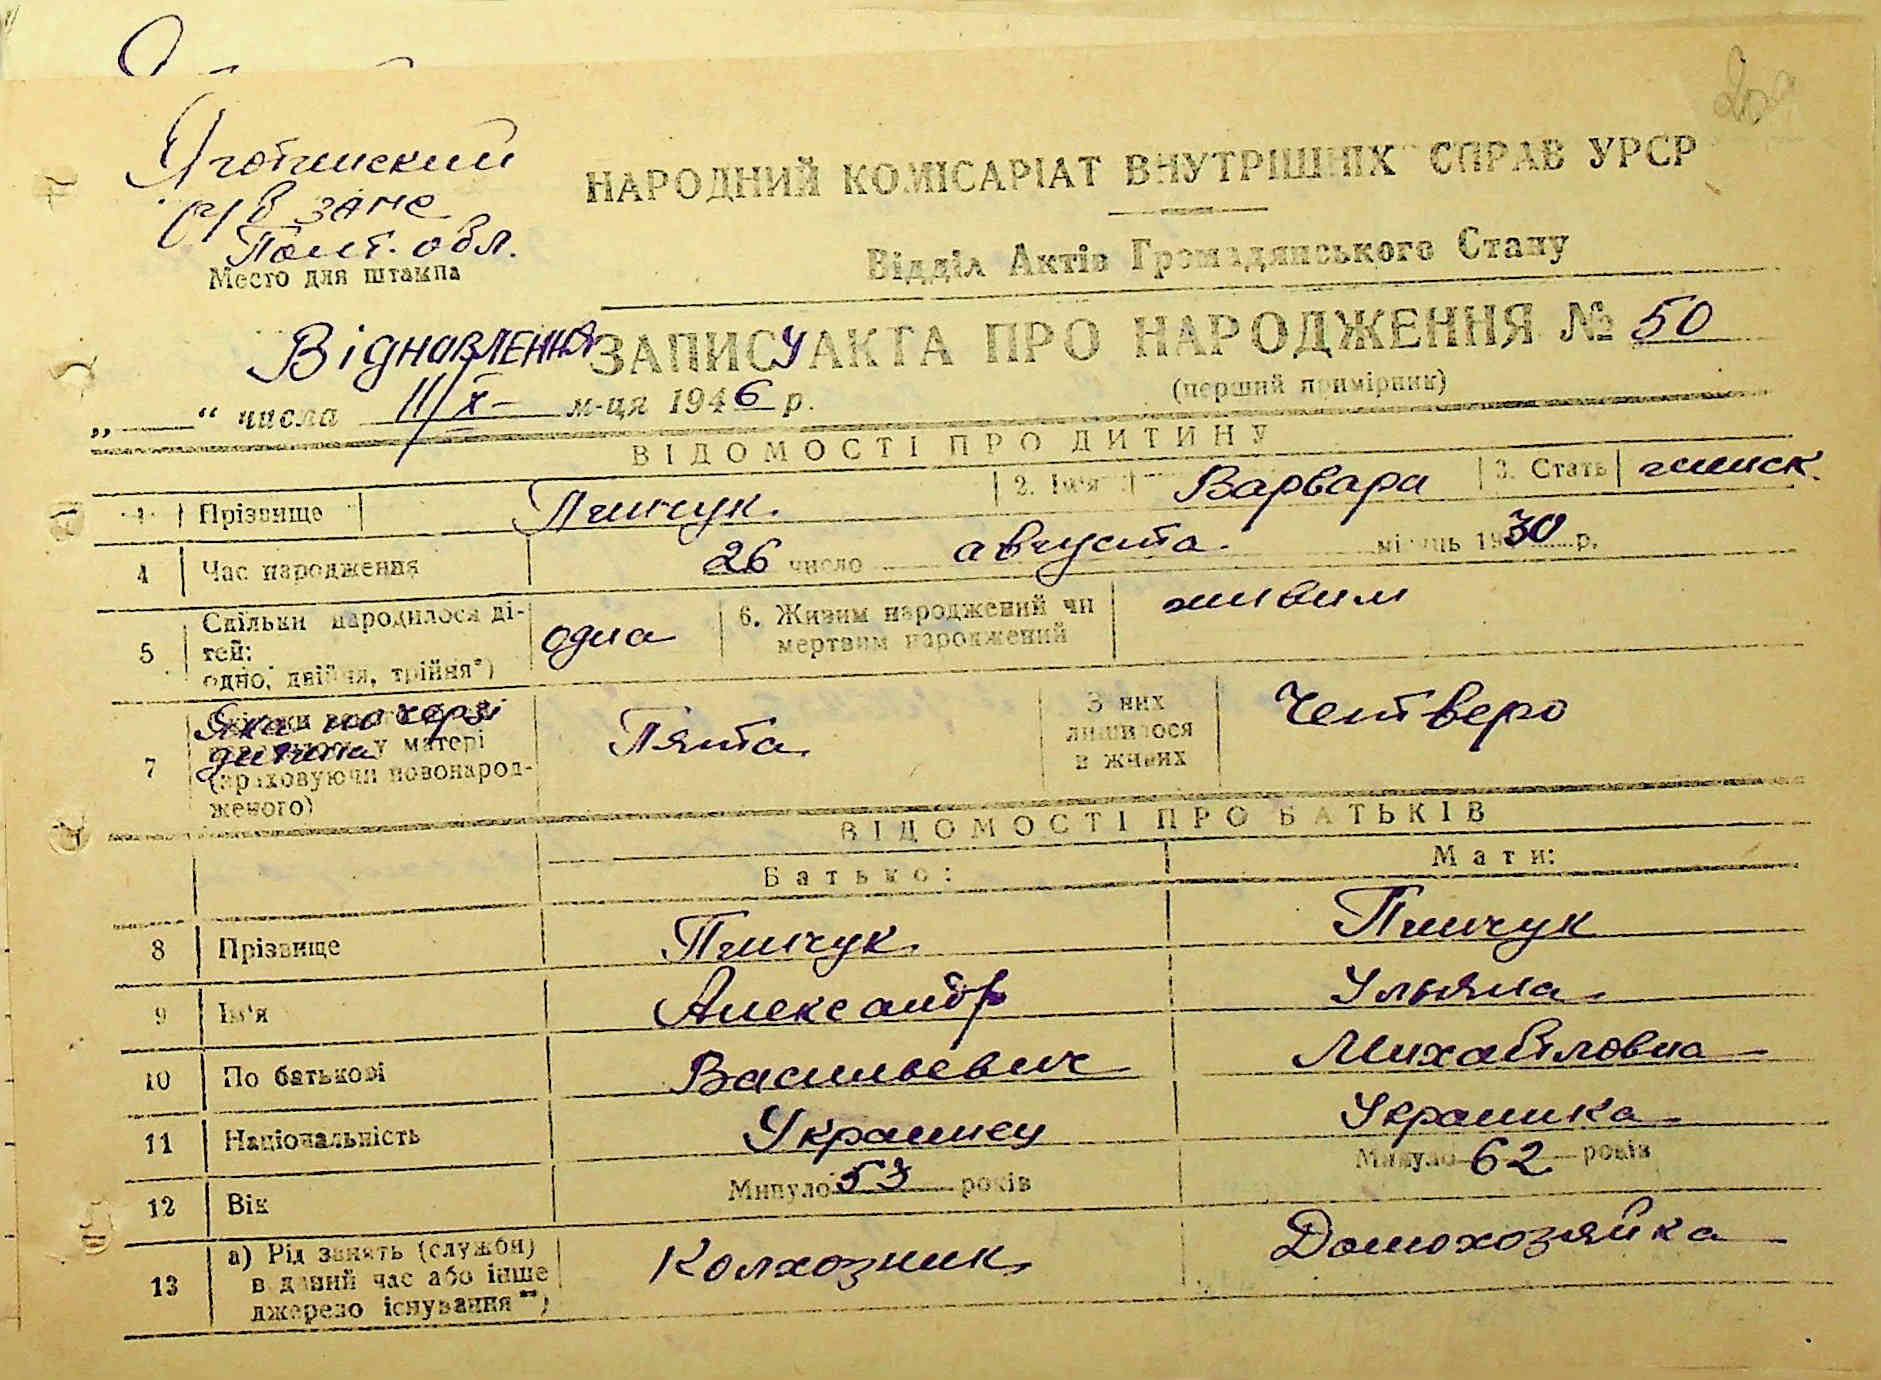 Яготинский
р/в загс
Полт. обл.
Место для штампа
НАРОДНИЙ КОМІСАРІАТ ВНУТРІШНІХ СПРАВ УРСР
Відділ Актів Громадянського Стану
Відновлення ЗАПИСУ АКТА ПРО НАРОДЖЕННЯ № 50
(перший примірник)
„ “ числа 11/X- м-ця 1946 р.
ВІДОМОСТІ ПРО ДИТИНУ
1 Прізвище Пинчук. 2. Ім'я Варвара 3. Стать жинск.
4 Час народження 26 число августа місяць 1930 р.
5 Скільки народилося дітей: одно, двійня, трійня*) одна 6. Живим народжений чи мертвим народжений живим
7 Яка по черзі дитина у матері (враховуючи новонародженого) Пята З них лишилося в живих Четверо
ВІДОМОСТІ ПРО БАТЬКІВ
Батько: Мати:
8 Прізвище Пинчук. Пинчук
9 Ім'я Александр Ульяна
10 По батькові Васильевич Михайловна
11 Національність Украинец Украинка
12 Вік Минуло 53 років Минуло 62 років
13 а) Рід занять (служби) в даний час або інше джерело існування**) Колхозник Домохозяйка